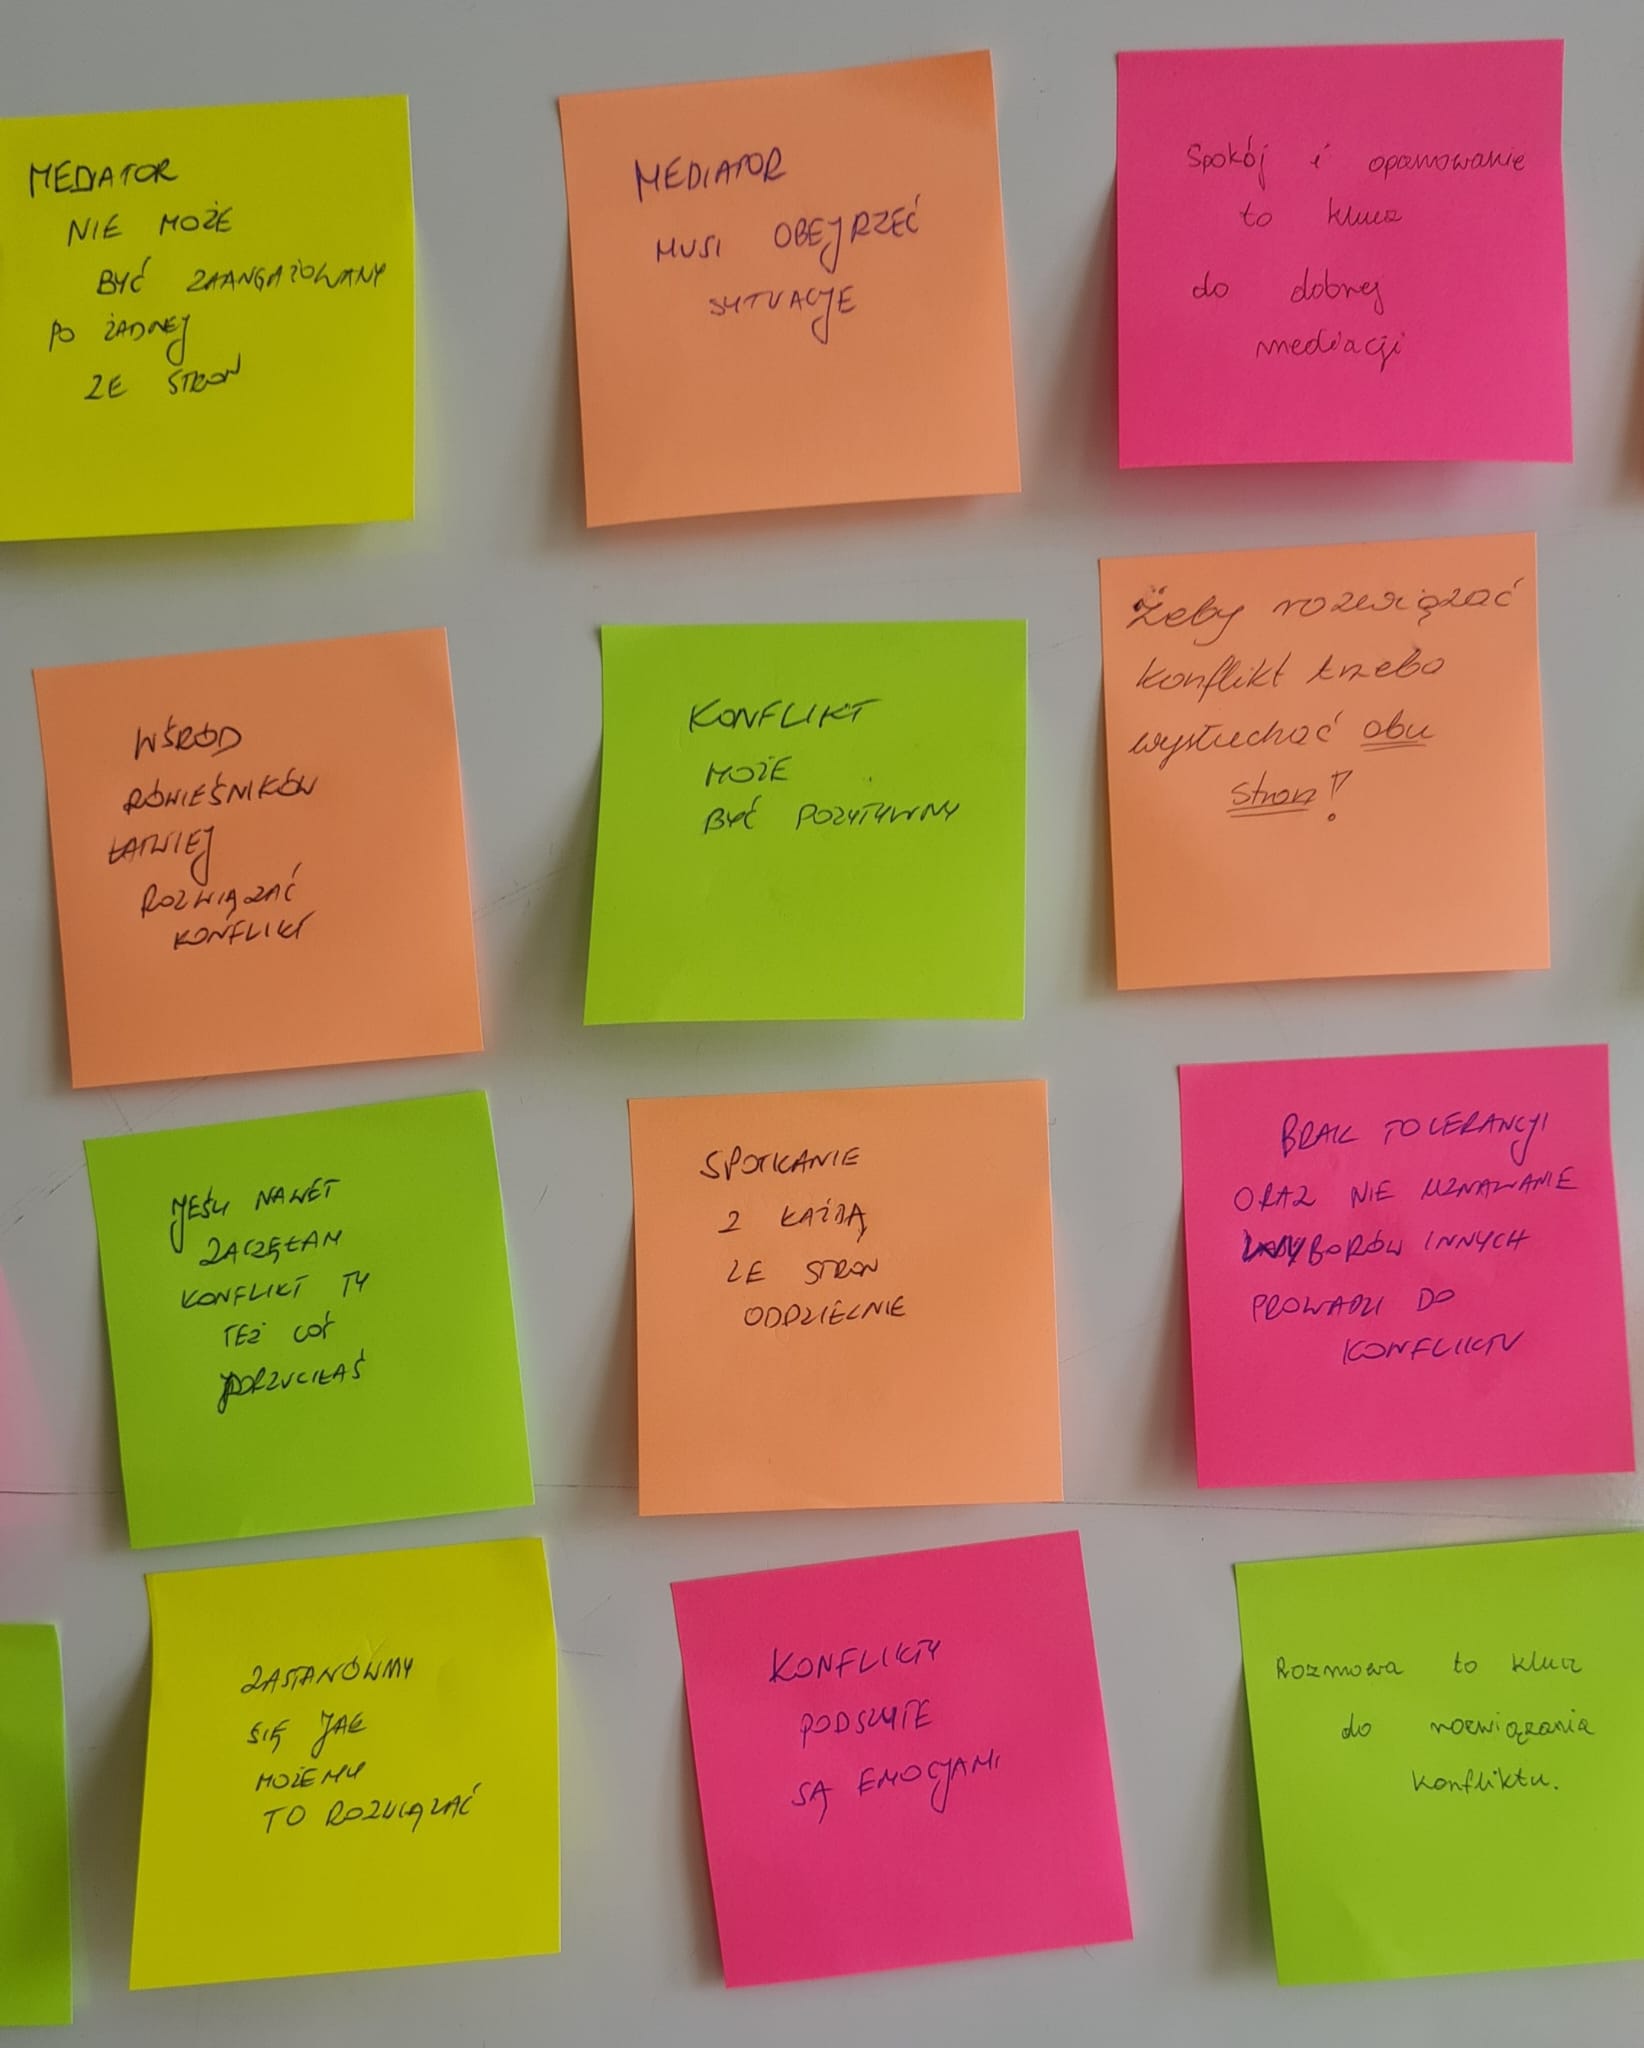 MEDIATOR
NIE MOŻE
BYĆ ZAANGAŻOWANY
PO ŻADNEJ
ZE STRON
MEDIATOR
MUSI OBEJRZEĆ
SYTUACJE
Spokój i opanowanie
to klucz
do dobrej
mediacji
WŚRÓD
RÓWIEŚNIKÓW
ŁATWIEJ
ROZWIĄZAĆ
KONFLIKT
KONFLIKT
MOŻE
BYĆ POZYTYWNY
Żeby rozwiązać
konflikt trzeba
wysłuchać obu
stron!
JEŚLI NAWET
ZACZĘŁAM
KONFLIKT TY
TEŻ COŚ
DORZUCIŁAŚ
SPOTKANIE
Z KAŻDĄ
ZE STRON
ODDZIELNIE
BRAK TOLERANCJI
ORAZ NIE UZNAWANIE
WYBORÓW INNYCH
PROWADZI DO
KONFLIKTU
ZASTANÓWMY
SIĘ JAK
MOŻEMY
TO ROZWIĄZAĆ
KONFLIKTY
PODSZYTE
SĄ EMOCJAMI
Rozmowa to klucz
do rozwiązania
konfliktu.